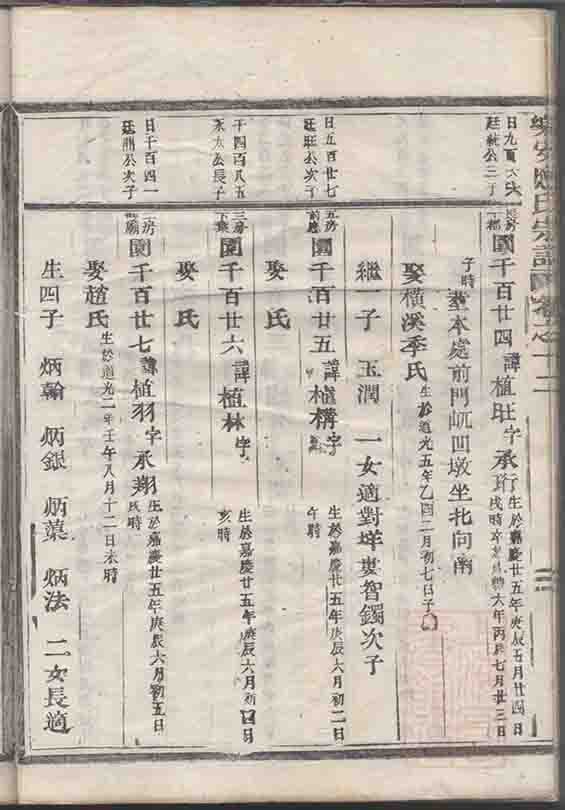 氏宗譜
日九百
廷
公三子
房
國千百廿四 諱植旺字承珩
生於嘉慶廿五年庚辰五月廿四日
戌時卒 六年丙辰七月廿三日
子時
葬本處前門屼凹墩坐北向南
娶橫溪季氏
生於道光五年乙酉二月初七日子
繼一子 玉潤 一女適對垟 智鐲次子
日五百廿七
廷旺公次子
五房
國千百廿五 諱植構字
生於嘉慶廿五年庚辰六月初二日
午時
娶 氏
千四百八五
公長子
三房
國千百廿六 諱植林字
生於嘉慶廿五年庚辰六月初 日
亥時
娶 氏
日千百四一
廷鼎公次子
二房
國千百廿七 諱植羽字承翔
生於嘉慶廿五年庚辰六月初五日
戌時
娶趙氏
生於道光二年壬午八月十二日未時
生四子 炳翰 炳銀 炳葉 炳法 二女長適